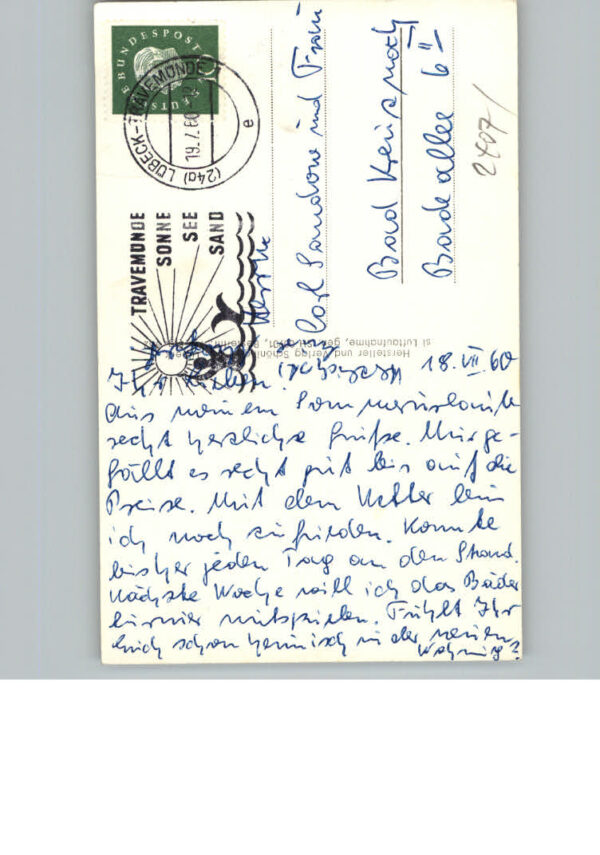 DEUTSCHE BUNDESPOST
(24a) LÜBECK-TRAVEMÜNDE 1
19.7.60
e
TRAVEMÜNDE
SONNE
SEE
SAND
Herrn
Carl Sandrow und Frau
Bad Kreuznach
Badeallee 6 II
2407/
Hersteller und Verlag Schöning
Luftaufnahme,
18. VII. 60
Ihr Lieben!
Aus meinem Sommerurlaub
recht herzliche Grüße. Mir ge-
fällt es recht gut bis auf die
Preise. Mit dem Wetter bin
ich noch zufrieden. Konnte
bisher jeden Tag an den Strand.
Nächste Woche will ich das Bäder
turnier mitspielen. Fühlt Ihr
Euch schon heimisch in der neuen
Wohnung?